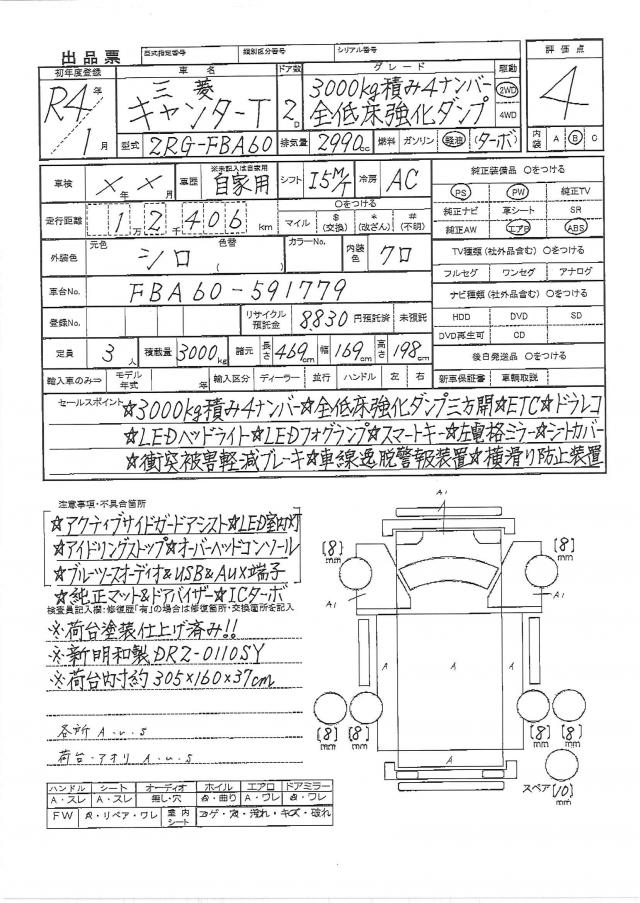 出品票
型式指定番号 類別区分番号 シリアル番号
初年度登録 車名 ドア数 グレード 駆動 評価点
R4年 1月 三菱 キャンターT 2D 3000kg積み4ナンバー 全低床強化ダンプ 2WD 4WD 4
型式 2RG-FBA60 排気量 2990cc 燃料 ガソリン 軽油 ターボ 内装 A B C
車検 ×年×月 車歴 ※未記入は自家用 自家用 シフト I5M/T 冷房 AC 純正装備品 〇をつける
PS PW 純正TV
走行距離 1万2千406km 〇をつける マイル $(交換) *(改ざん) #(不明)
純正ナビ 革シート SR
純正AW エアB ABS
外装色 元色 シロ 色替 ( ) カラーNo. ( ) 内装色 クロ
TV種類(社外品含む) 〇をつける
フルセグ ワンセグ アナログ
車台No. FBA60-591779
ナビ種類(社外品含む) 〇をつける
登録No. リサイクル預託金 8.830円預託済 未預託
HDD DVD SD
DVD再生可 CD
定員 3人 積載量 3000kg 諸元 長さ 469cm 幅 169cm 高さ 198cm
後日発送品 〇をつける
輸入車のみ⇒ モデル年式 年 輸入区分 ディーラー・並行 ハンドル 左・右 新車保証書 車輌取説
セールスポイント ☆3000kg積み4ナンバー☆全低床強化ダンプ三方開☆ETC☆ドラレコ
☆LEDヘッドライト☆LEDフォグランプ☆スマートキー☆左電格ミラー☆シートカバー
☆衝突被害軽減ブレーキ☆車線逸脱警報装置☆横滑り防止装置
注意事項・不具合箇所
☆アクティブサイドガードアシスト☆LED室内灯
☆アイドリングストップ☆オーバーヘッドコンソール
☆ブルーツースオーディオ&USB&AUX端子
☆純正マット&ドアバイザー☆ICターボ
検査員記入欄:修復歴「有」の場合は修復箇所・交換箇所を記入
※荷台塗装仕上げ済み!!
※新明和製DR2-0110SY
※荷台内寸約305×160×37cm
各所 A.u.s
荷台・アオリ A.u.s
A1
[8]mm [8]mm
A1 A1
A A A
[8]mm [8]mm [8]mm [8]mm
A
スペア [10]mm
ハンドル シート オーディオ ホイル エアロ ドアミラー
A・スレ A・スレ 無し・穴 A・曲り A・ワレ A・ワレ
FW A・リペア・ワレ 室内シート コゲ・穴・汚れ・キズ・破れ